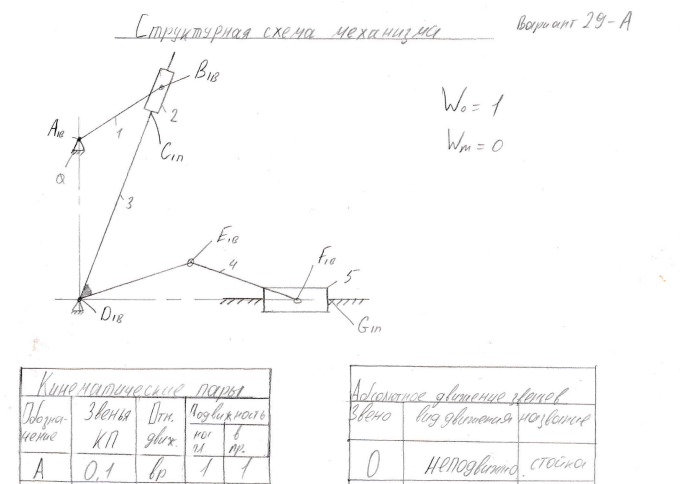 Структурная схема механизма
Вариант 29-А
B1в
W₀ = 1
Wm = 0
A1в
1
2
C1п
0
3
E1в
4
F1в
5
D1в
G1п
Кинематические пары
Обозна-
чение
Звенья
КП
Отн.
движ.
Подвижность
на
пл
в
пр.
А 0,1 вр 1 1
Абсолютное движение звеньев
Звено вид движения название
0 неподвижно стойка